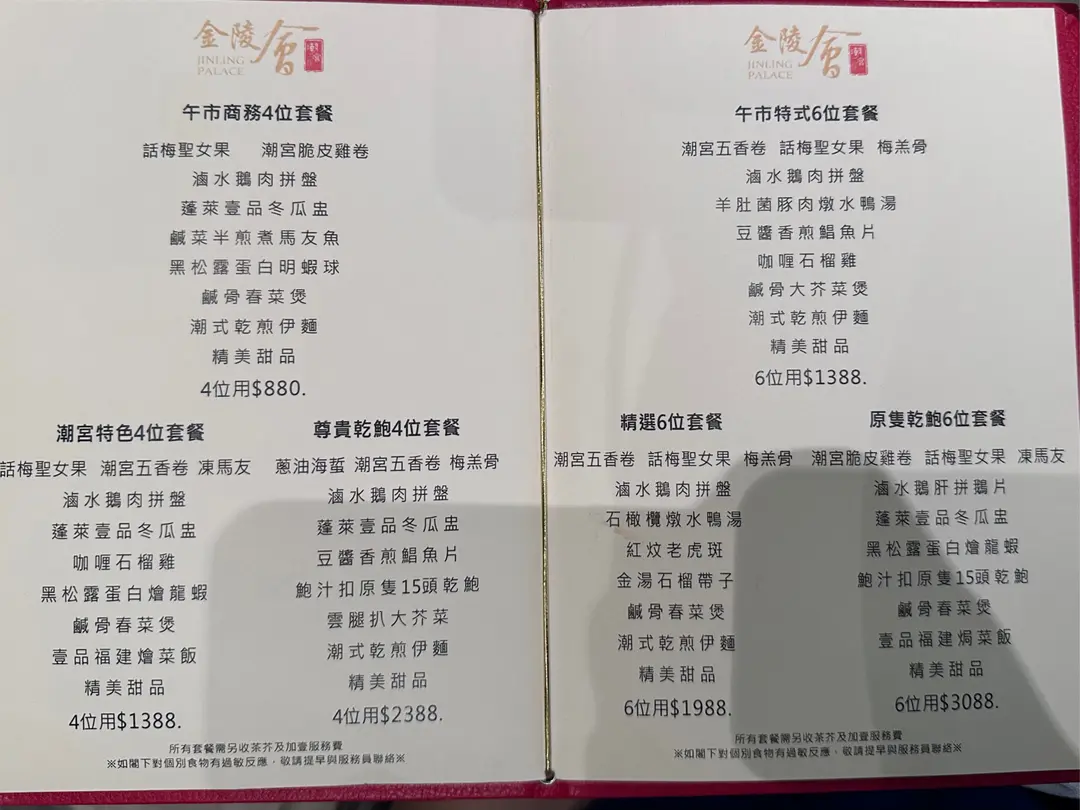 金陵會
潮宮
JINLING
PALACE
午市商務4位套餐
話梅聖女果 潮宮脆皮雞卷
滷水鵝肉拼盤
蓬萊壹品冬瓜盅
鹹菜半煎煮馬友魚
黑松露蛋白明蝦球
鹹骨春菜煲
潮式乾煎伊麵
精美甜品
4位用$880.
潮宮特色4位套餐
話梅聖女果 潮宮五香卷 凍馬友
滷水鵝肉拼盤
蓬萊壹品冬瓜盅
咖喱石榴雞
黑松露蛋白燴龍蝦
鹹骨春菜煲
壹品福建燴菜飯
精美甜品
4位用$1388.
尊貴乾鮑4位套餐
蔥油海蜇 潮宮五香卷 梅羔骨
滷水鵝肉拼盤
蓬萊壹品冬瓜盅
豆醬香煎鯧魚片
鮑汁扣原隻15頭乾鮑
雲腿扒大芥菜
潮式乾煎伊麵
精美甜品
4位用$2388.
所有套餐需另收茶芥及加壹服務費
※如閣下對個別食物有過敏反應，敬請提早與服務員聯絡※
金陵會
潮宮
JINLING
PALACE
午市特式6位套餐
潮宮五香卷 話梅聖女果 梅羔骨
滷水鵝肉拼盤
羊肚菌豚肉燉水鴨湯
豆醬香煎鯧魚片
咖喱石榴雞
鹹骨大芥菜煲
潮式乾煎伊麵
精美甜品
6位用$1388.
精選6位套餐
潮宮五香卷 話梅聖女果 梅羔骨
滷水鵝肉拼盤
石橄欖燉水鴨湯
紅炆老虎斑
金湯石榴帶子
鹹骨春菜煲
潮式乾煎伊麵
精美甜品
6位用$1988.
原隻乾鮑6位套餐
潮宮脆皮雞卷 話梅聖女果 凍馬友
滷水鵝肝拼鵝片
蓬萊壹品冬瓜盅
黑松露蛋白燴龍蝦
鮑汁扣原隻15頭乾鮑
鹹骨春菜煲
壹品福建焗菜飯
精美甜品
6位用$3088.
所有套餐需另收茶芥及加壹服務費
※如閣下對個別食物有過敏反應，敬請提早與服務員聯絡※